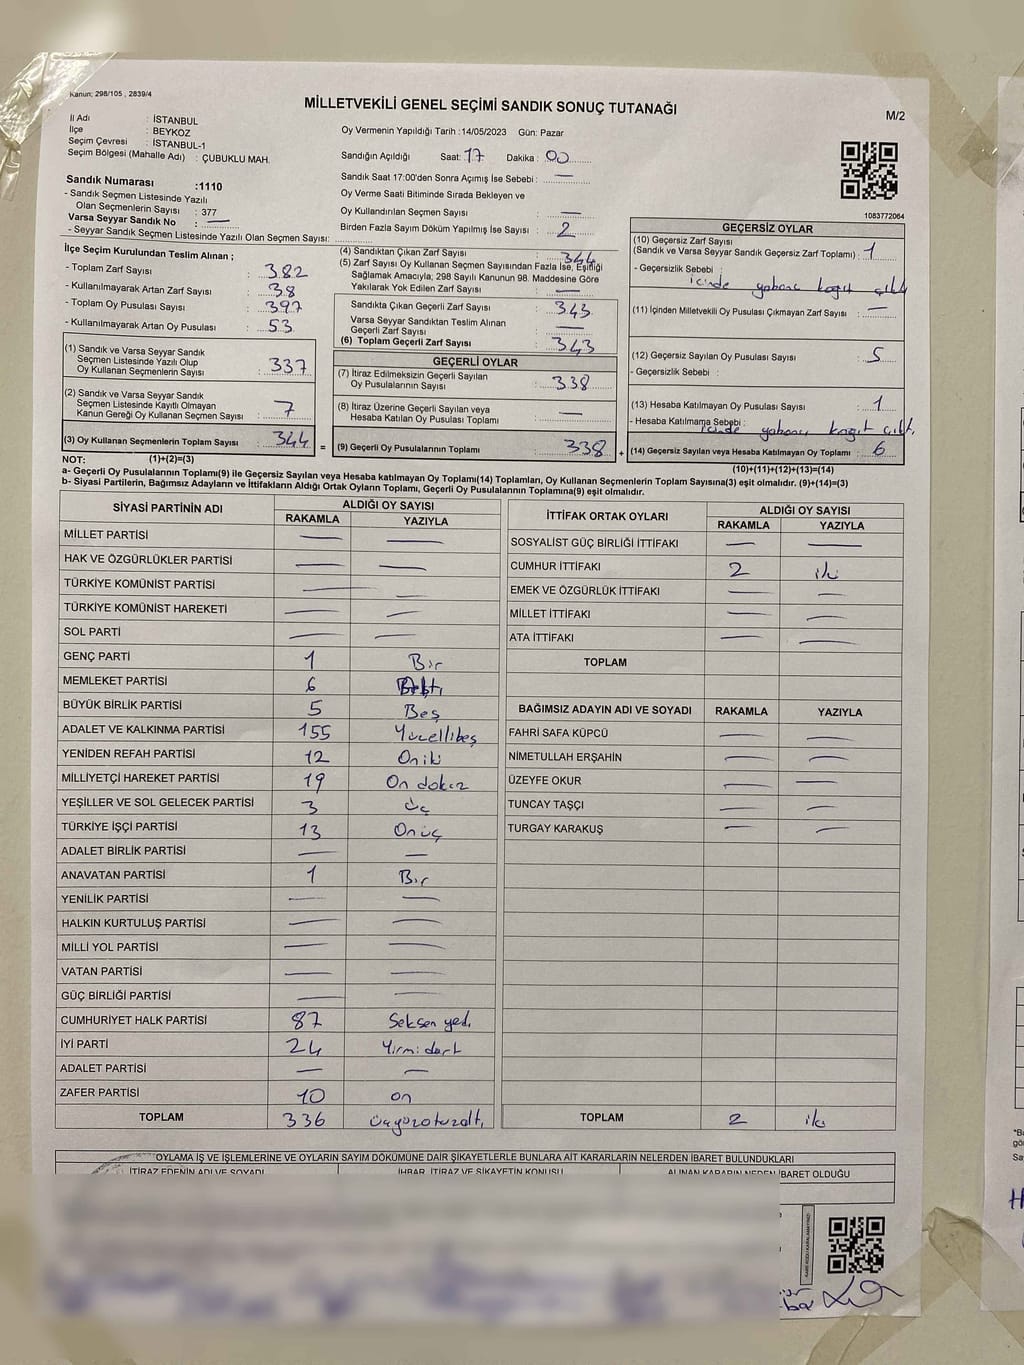 Kanun; 298/105 , 2839/4
MİLLETVEKİLİ GENEL SEÇİMİ SANDIK SONUÇ TUTANAĞI
M/2
İl Adı : İSTANBUL
İlçe : BEYKOZ
Seçim Çevresi : İSTANBUL-1
Seçim Bölgesi (Mahalle Adı) : ÇUBUKLU MAH.
Oy Vermenin Yapıldığı Tarih :14/05/2023 Gün: Pazar
Sandığın Açıldığı Saat: 17 Dakika : 00
Sandık Saat 17:00'den Sonra Açımış İse Sebebi : —
Oy Verme Saati Bitiminde Sırada Bekleyen ve
Oy Kullandırılan Seçmen Sayısı : —
Birden Fazla Sayım Döküm Yapılmış İse Sayısı : 2
1083772064
Sandık Numarası :1110
- Sandık Seçmen Listesinde Yazılı
Olan Seçmenlerin Sayısı : 377
Varsa Seyyar Sandık No : —
- Seyyar Sandık Seçmen Listesinde Yazılı Olan Seçmen Sayısı:
İlçe Seçim Kurulundan Teslim Alınan ;
- Toplam Zarf Sayısı : 382
- Kullanılmayarak Artan Zarf Sayısı : 38
- Toplam Oy Pusulası Sayısı : 397
- Kullanılmayarak Artan Oy Pusulası : 53
(1) Sandık ve Varsa Seyyar Sandık
Seçmen Listesinde Yazılı Olup
Oy Kullanan Seçmenlerin Sayısı : 337
(2) Sandık ve Varsa Seyyar Sandık
Seçmen Listesinde Kayıtlı Olmayan
Kanun Gereği Oy Kullanan Seçmen Sayısı : 7
(3) Oy Kullanan Seçmenlerin Toplam Sayısı : 344 =
(1)+(2)=(3)
(4) Sandıktan Çıkan Zarf Sayısı : 344
(5) Zarf Sayısı Oy Kullanan Seçmen Sayısından Fazla İse, Eşitliği
Sağlamak Amacıyla; 298 Sayılı Kanunun 98. Maddesine Göre
Yakılarak Yok Edilen Zarf Sayısı : —
Sandıkta Çıkan Geçerli Zarf Sayısı : 343
Varsa Seyyar Sandıktan Teslim Alınan
Geçerli Zarf Sayısı : —
(6) Toplam Geçerli Zarf Sayısı : 343
GEÇERLİ OYLAR
(7) İtiraz Edilmeksizin Geçerli Sayılan
Oy Pusulalarının Sayısı : 338
(8) İtiraz Üzerine Geçerli Sayılan veya
Hesaba Katılan Oy Pusulası Sayısı : —
(9) Geçerli Oy Pusulalarının Toplamı : 338 +
GEÇERSİZ OYLAR
(10) Geçersiz Zarf Sayısı
(Sandık ve Varsa Seyyar Sandık Geçersiz Zarf Toplamı) : 1
- Geçersizlik Sebebi : içinde yabancı kağıt çıktı
(11) İçinden Milletvekili Oy Pusulası Çıkmayan Zarf Sayısı : —
(12) Geçersiz Sayılan Oy Pusulası Sayısı : 5
- Geçersizlik Sebebi :
(13) Hesaba Katılmayan Oy Pusulası Sayısı : 1
- Hesaba Katılmama Sebebi : içinde yabancı kağıt çıktı.
(14) Geçersiz Sayılan veya Hesaba Katılmayan Oy Toplamı : 6
(10)+(11)+(12)+(13)=(14)
NOT:
a- Geçerli Oy Pusulalarının Toplamı(9) ile Geçersiz Sayılan veya Hesaba katılmayan Oy Toplamı(14) Toplamları, Oy Kullanan Seçmenlerin Toplam Sayısına(3) eşit olmalıdır. (9)+(14)=(3)
b- Siyasi Partilerin, Bağımsız Adayların ve İttifakların Aldığı Ortak Oyların Toplamı, Geçerli Oy Pusulalarının Toplamına(9) eşit olmalıdır.
SİYASİ PARTİNİN ADI ALDIĞI OY SAYISI
RAKAMLA YAZIYLA
MİLLET PARTİSİ — —
HAK VE ÖZGÜRLÜKLER PARTİSİ — —
TÜRKİYE KOMÜNİST PARTİSİ — —
TÜRKİYE KOMÜNİST HAREKETİ — —
SOL PARTİ — —
GENÇ PARTİ 1 Bir
MEMLEKET PARTİSİ 6
BÜYÜK BİRLİK PARTİSİ 5 Beş
ADALET VE KALKINMA PARTİSİ 155 Yüzellibeş
YENİDEN REFAH PARTİSİ 12 Oniki
MİLLİYETÇİ HAREKET PARTİSİ 19 On dokuz
YEŞİLLER VE SOL GELECEK PARTİSİ 3 üç
TÜRKİYE İŞÇİ PARTİSİ 13 Onüç
ADALET BİRLİK PARTİSİ — —
ANAVATAN PARTİSİ 1 Bir
YENİLİK PARTİSİ — —
HALKIN KURTULUŞ PARTİSİ — —
MİLLİ YOL PARTİSİ — —
VATAN PARTİSİ — —
GÜÇ BİRLİĞİ PARTİSİ — —
CUMHURİYET HALK PARTİSİ 87 Seksen yedi
İYİ PARTİ 24 Yirmi dört
ADALET PARTİSİ — —
ZAFER PARTİSİ 10 on
TOPLAM 336 üçyüzotuzaltı
İTTİFAK ORTAK OYLARI ALDIĞI OY SAYISI
RAKAMLA YAZIYLA
SOSYALİST GÜÇ BİRLİĞİ İTTİFAKI — —
CUMHUR İTTİFAKI 2 iki
EMEK VE ÖZGÜRLÜK İTTİFAKI — —
MİLLET İTTİFAKI — —
ATA İTTİFAKI — —
TOPLAM
BAĞIMSIZ ADAYIN ADI VE SOYADI RAKAMLA YAZIYLA
FAHRİ SAFA KÜPCÜ — —
NİMETULLAH ERŞAHİN — —
ÜZEYFE OKUR — —
TUNCAY TAŞÇI — —
TURGAY KARAKUŞ — —
TOPLAM 2 iki
OYLAMA İŞ VE İŞLEMLERİNE VE OYLARIN SAYIM DÖKÜMÜNE DAİR ŞİKAYETLERLE BUNLARA AİT KARARLARIN NELERDEN İBARET BULUNDUKLARI
İTİRAZ EDENİN ADI VE SOYADI İHBAR, İTİRAZ VE ŞİKAYETİN KONUSU ALINAN KARARIN NEDEN İBARET OLDUĞU